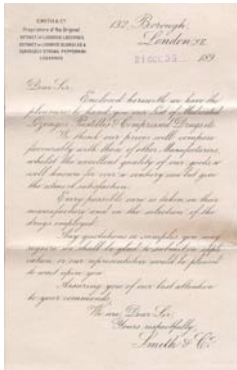 SMITH & Co
Proprietors of the Original
132, Borough,
London, S.E.
21 DEC 95 189
Dear Sir,
Enclosed herewith we have the
pleasure to hand you our List of Medicated
Lozenges, Pastilles, Compressed Drugs &c.
We think our prices will compare
favorably with those of other Manufacturers,
whilst the excellent quality of our goods is
well known for over a century and
give the utmost satisfaction.
Every possible care is taken in their
manufacture and in the selection of the
drugs employed.
Any quotations or samples you may
require we shall be glad to on
or our representative would be pleased
to wait upon you.
Assuring you of our best attention
to your commands,
We are, Dear Sir,
Yours respectfully,
Smith & Co.